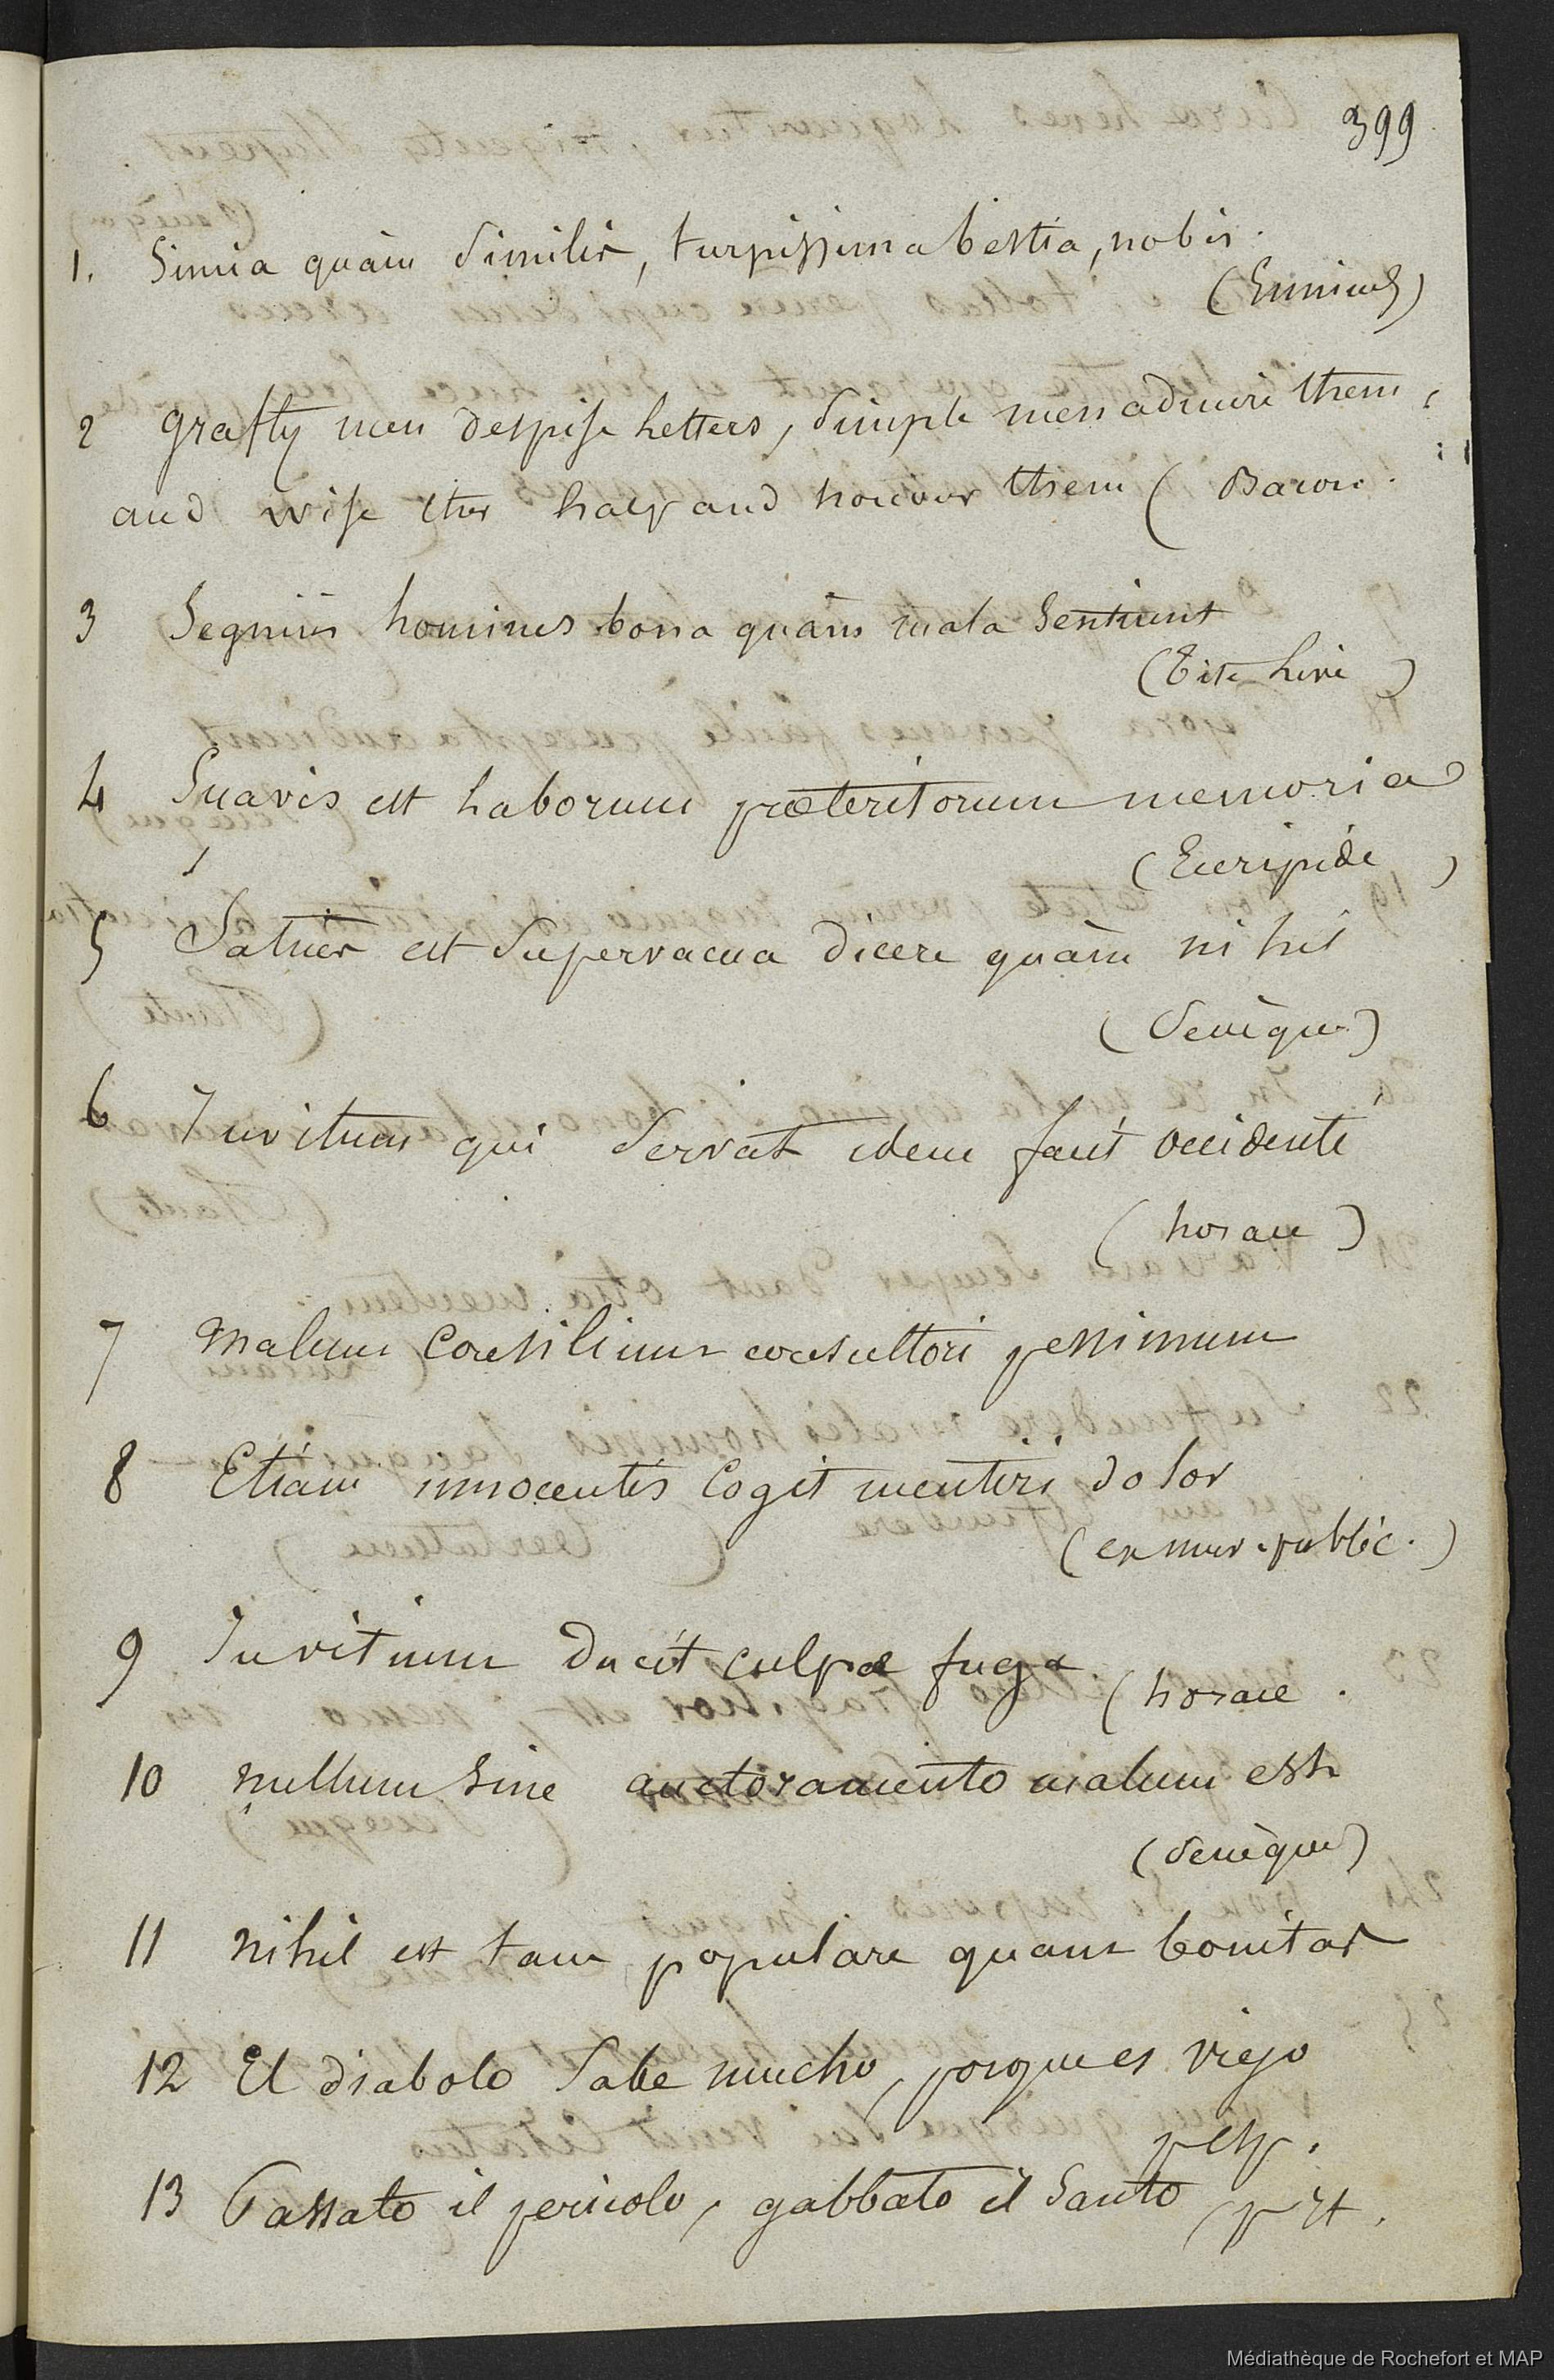 399
1. Simia quàm similis, turpissima bestia, nobis.
(Ennius)
2 Grafty men despise letters, simple men admire them,
and wise and honour them ( Bacon.
3 Segniùs homines bona quàm mala sentiunt
(Tite Live )
4 Suavis est laborum præteritorum memoria
(Euripide )
5 Satius est supervacua dicere quàm nihil
(Senèque)
6 Invitum qui servat idem facit occidenti
(horace )
7 malum consilium consultori pessimum
8 Etiam innocentes cogit mentiri dolor
(ex mur. public. )
9 In vitium ducit culpæ fuga (horace .
10 nullum sine auctoramento malum est
(Senèque)
11 nihil est tam populare quam bonitas
12 El diabolo sabe mucho, porque es viejo
p esp.
13 Passato il pericolo, gabbato il Santo (p it.
Médiathèque de Rochefort et MAP